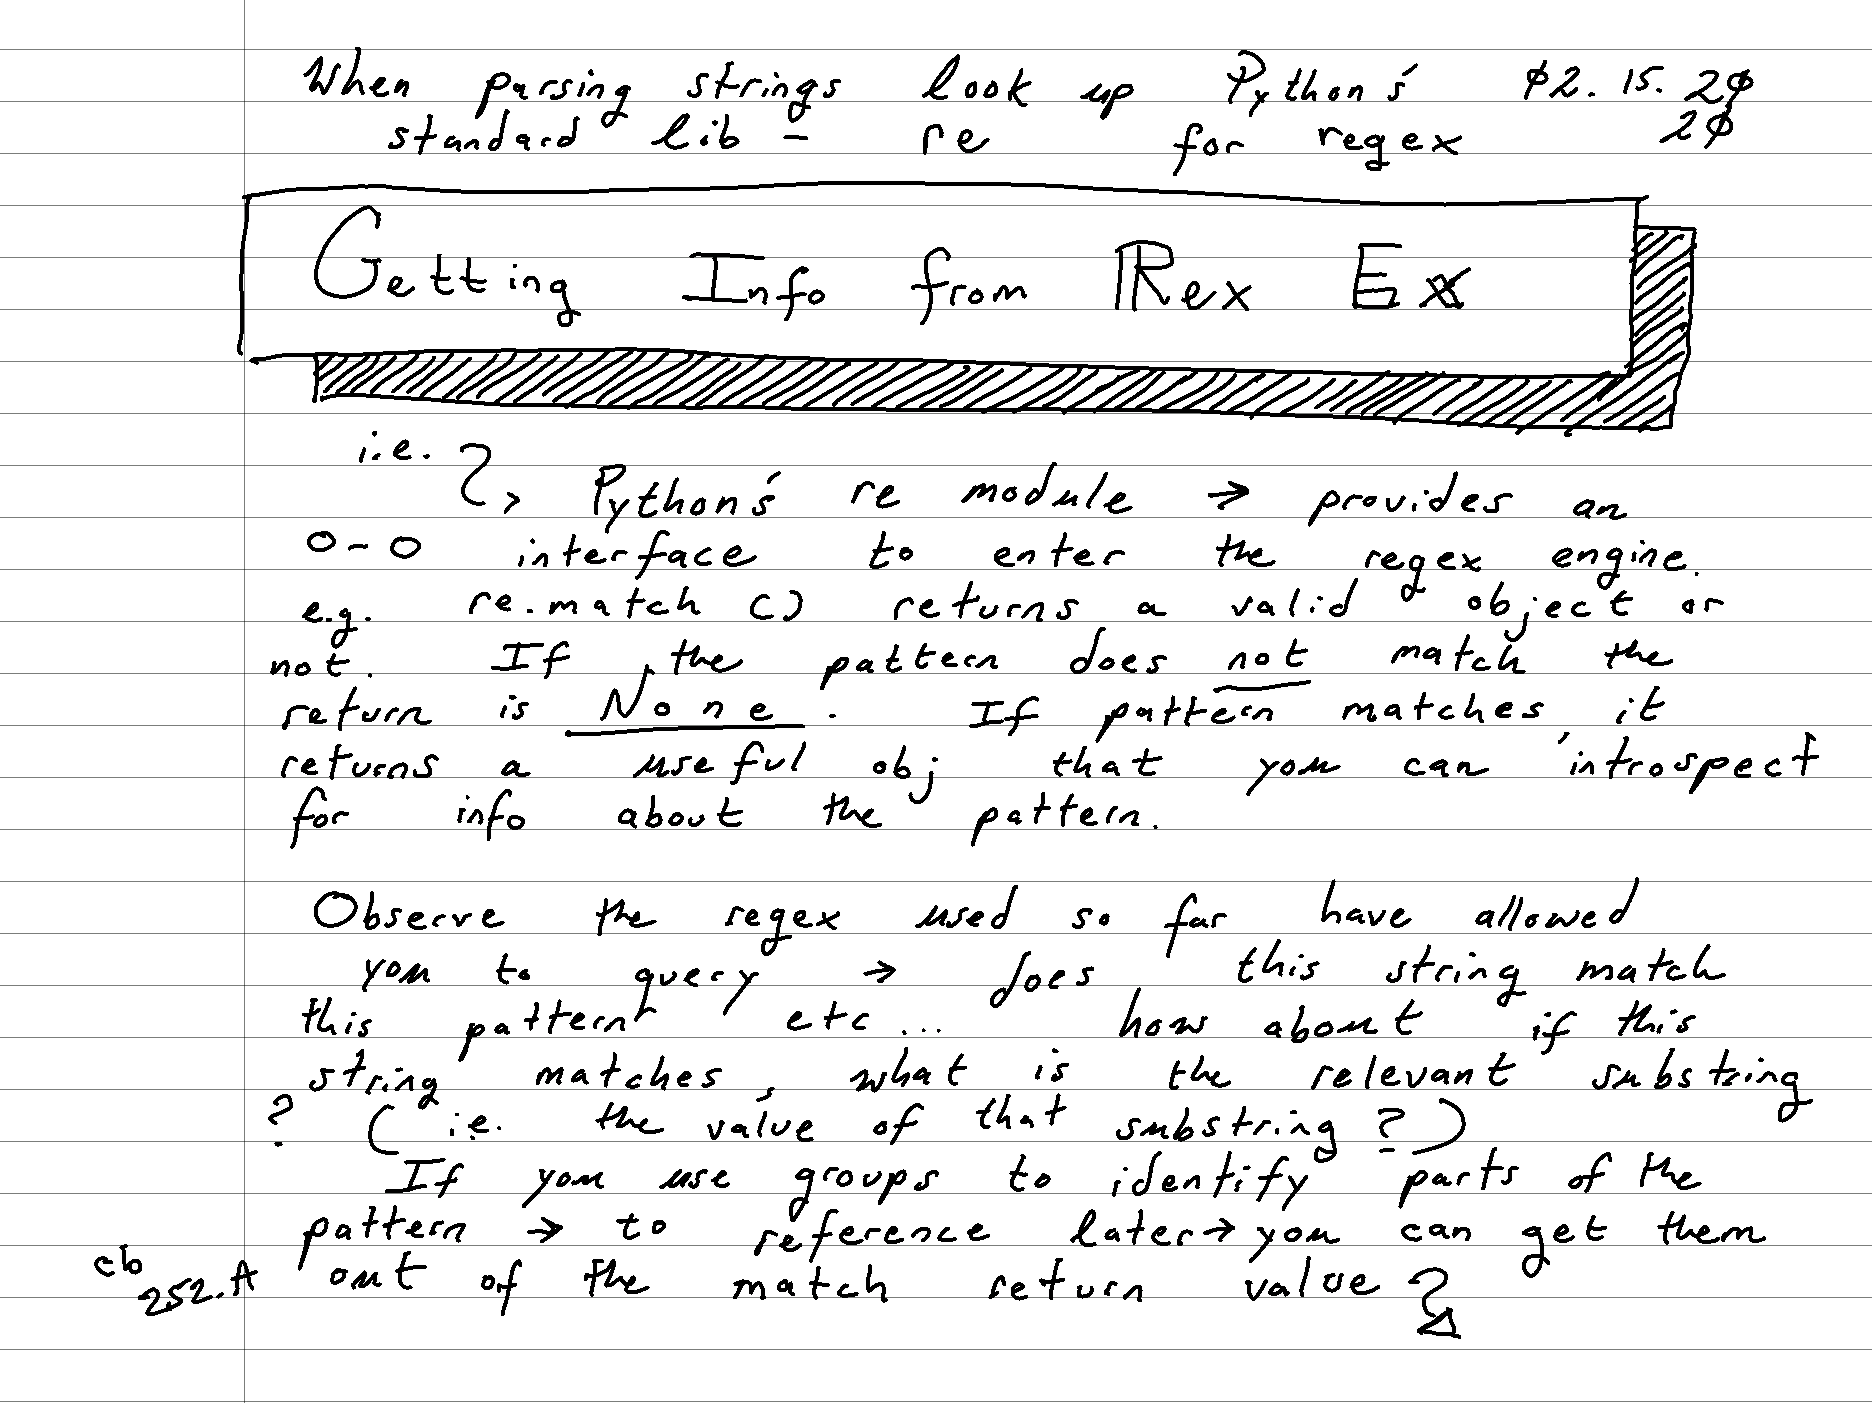 When parsing strings look up Python's ∅2. 15. 2∅
standard lib - re for regex 2∅
Getting Info from Rex Ex
i.e.
Python's re module → provides an
o-o interface to enter the regex engine.
e.g. re.match () returns a valid object or
not. If the pattern does not match the
return is None. If pattern matches, it
returns a useful obj that you can introspect
for info about the pattern.
Observe the regex used so far have allowed
you to query → does this string match
this pattern etc... how about if this
string matches, what is the relevant substring
? (i.e. the value of that substring?)
If you use groups to identify parts of the
pattern → to reference later → you can get them
cb
252.A out of the match return value